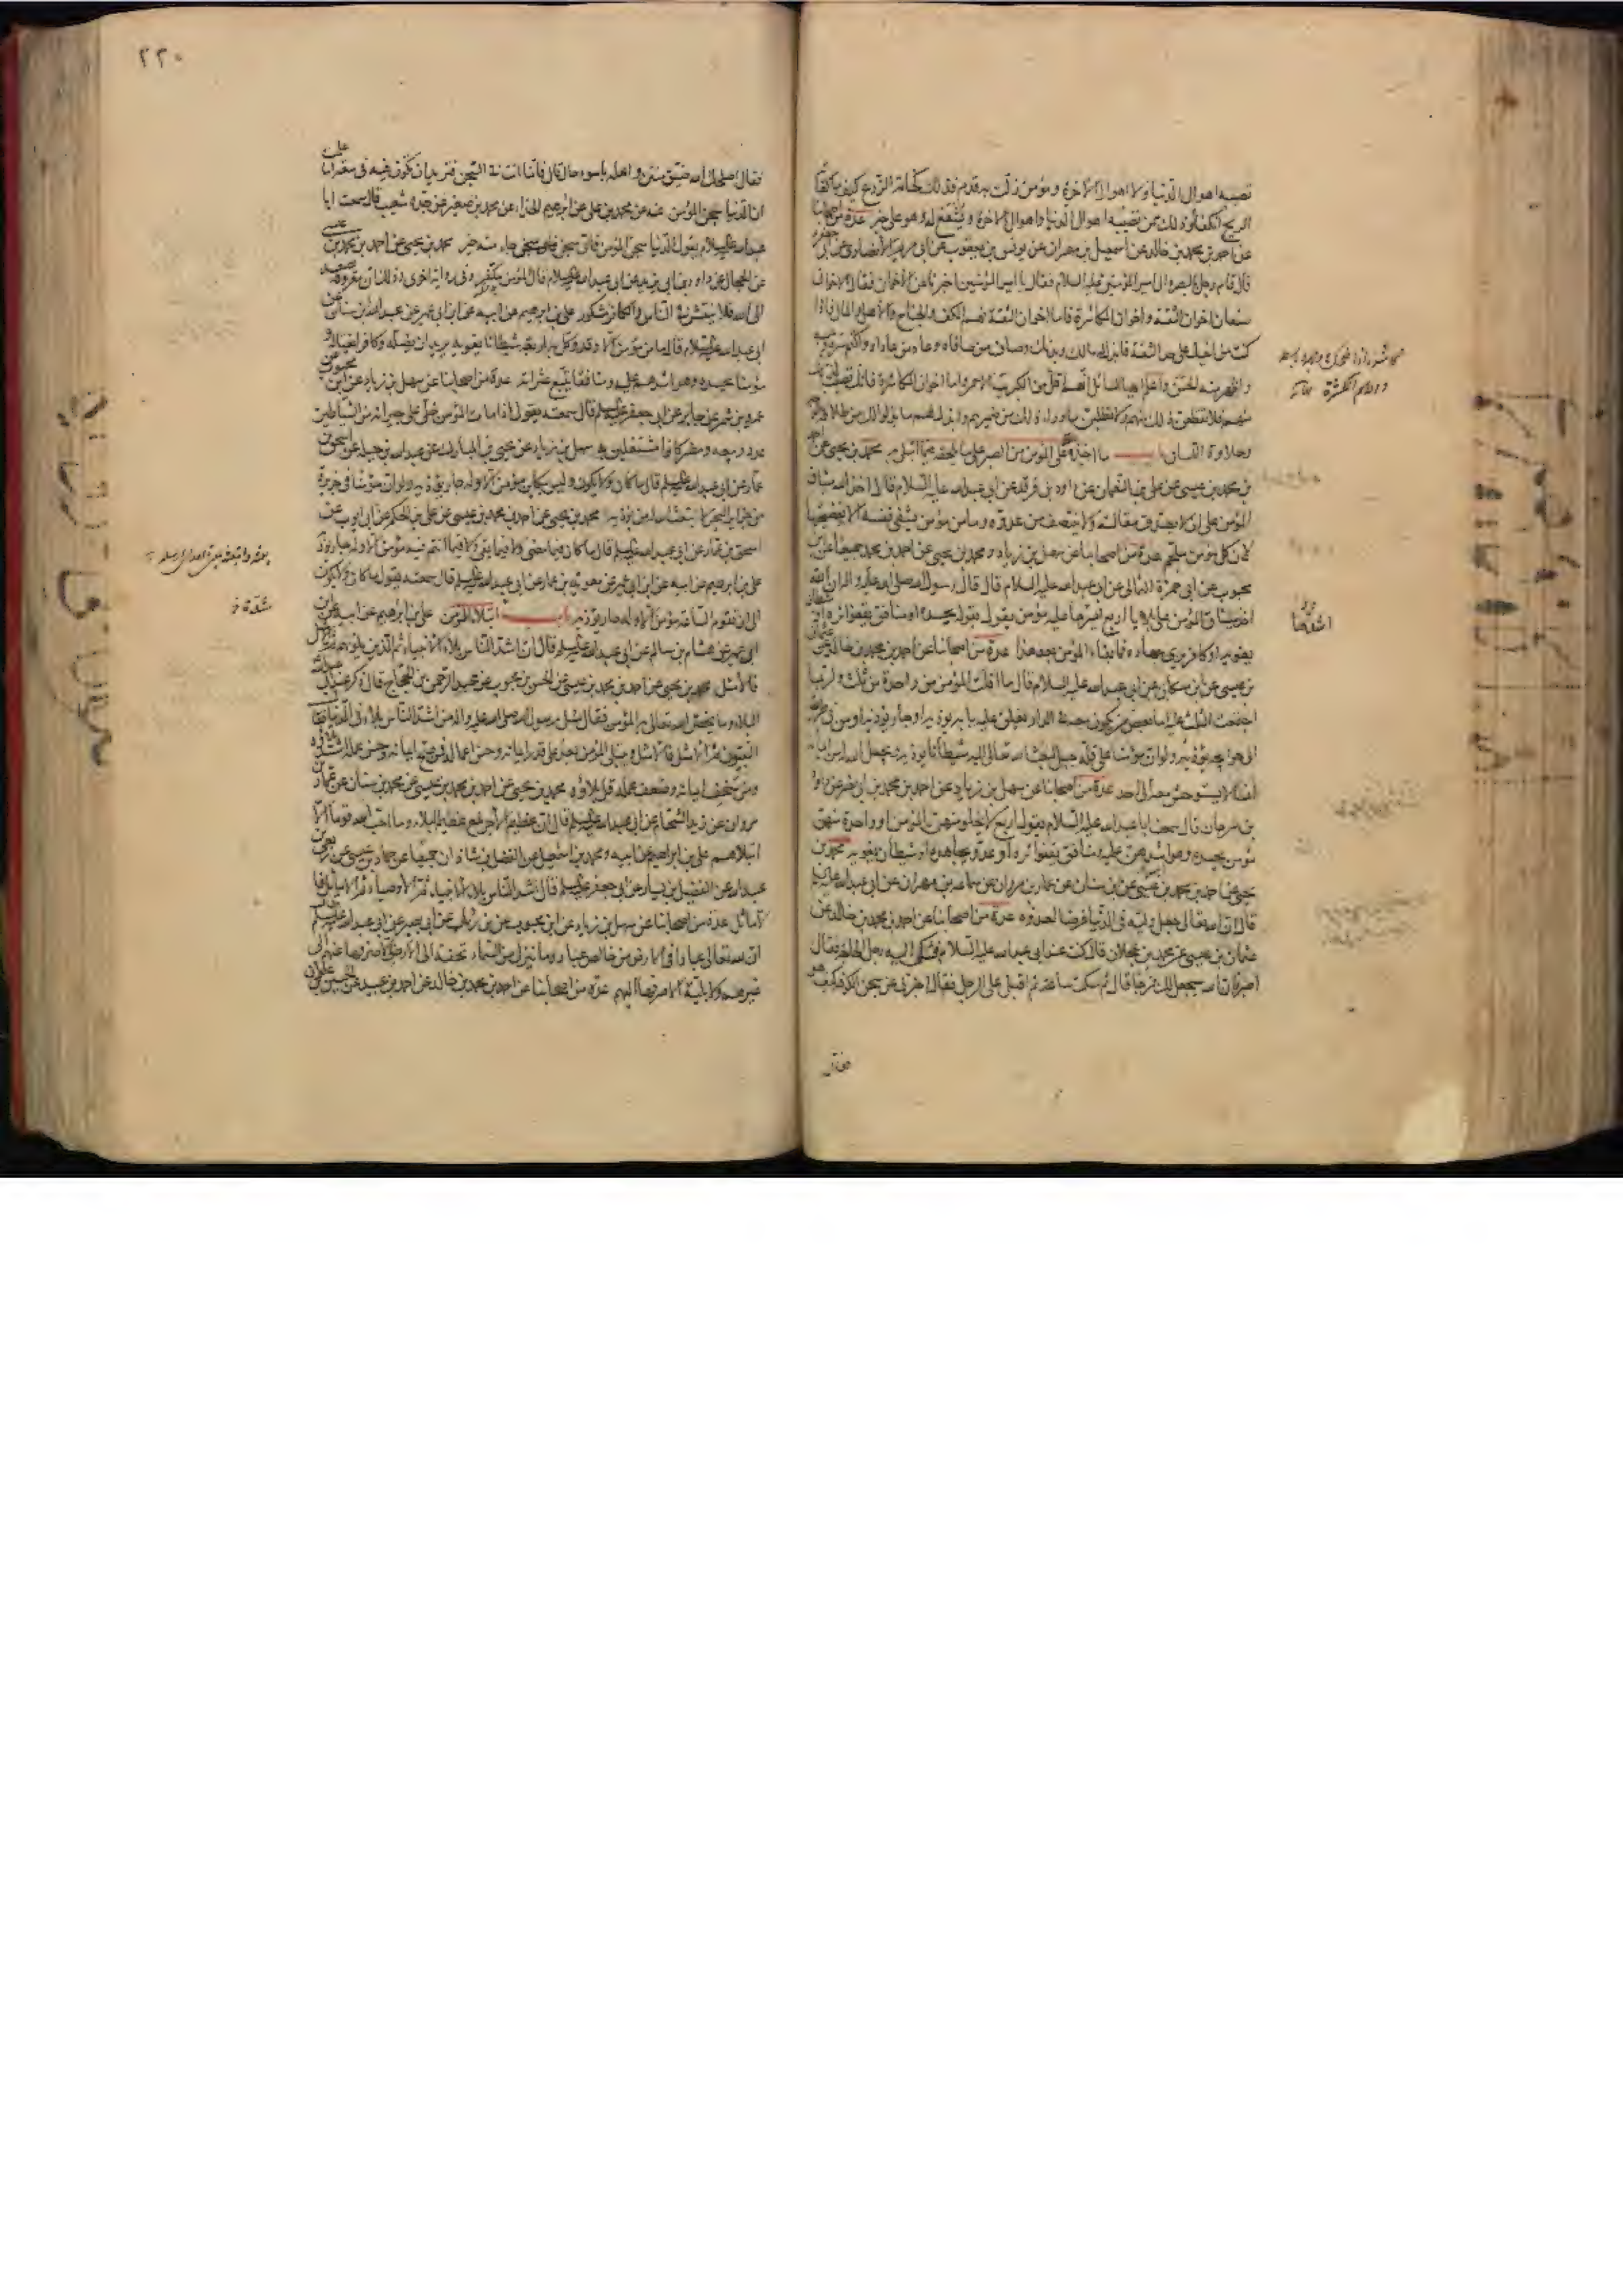 تصيبه اهوال الدنيا ولا اهوال الآخرة ومؤمن زلت به قدم فذلك كخامة الزرع كيف ما كفأته
الريح انكفأ وذلك ممن تصيبه اهوال الدنيا واهوال الآخرة ويشفع له وهو على خير عدة من اصحابنا
عن احمد بن محمد بن خالد عن اسمعيل بن مهران عن يونس بن يعقوب عن ابي مريم الانصاري عن ابي جعفر
قال قام رجل بالبصرة الى امير المؤمنين عليه السلام فقال يا امير المؤمنين اخبرنا عن الاخوان فقال الاخوان
صنفان اخوان الثقة واخوان المكاشرة فاما اخوان الثقة فهم الكف والجناح والاهل والمال فاذا
كنت من اخيك على حد الثقة فابذل له مالك وبدنك وصاف من صافاه وعاد من عاداه واكتم سره وعيبه
واظهر منه الحسن واعلم ايها السائل انهم اقل من الكبريت الاحمر واما اخوان المكاشرة فانك تصيب
منهم فلا تقطعن ذلك منهم ولا تطلبن ما وراء ذلك من ضميرهم وابذل لهم ما بذلوا لك من طلاقة الوجه
وحلاوة اللسان باب ما اخذه الله على المؤمن من الصبر على ما يلحقه فيما ابتلي به محمد بن يحيى عن احمد
بن محمد بن عيسى عن علي بن النعمان عن داود بن فرقد عن ابي عبد الله عليه السلام قال اخذ الله ميثاق
المؤمن على ان لا يصدق مقالته ولا ينتصف من عدوه وما من مؤمن يشفي نفسه الا بفضيحتها
لان كل مؤمن ملجم عدة من اصحابنا عن سهل بن زياد ومحمد بن يحيى عن احمد بن محمد جميعا عن ابن
محبوب عن ابي حمزة الثمالي عن ابي عبد الله عليه السلام قال قال رسول الله صلى الله عليه واله ان الله
اخذ ميثاق المؤمن على بلايا اربع ايسرها عليه مؤمن يقول بقوله يحسده او منافق يقفو اثره او شيطان
يغويه او كافر يرى جهاده فما بقاء المؤمن بعد هذا عدة من اصحابنا عن احمد بن محمد بن خالد عن عثمان
بن عيسى عن ابن مسكان عن ابي عبد الله عليه السلام قال ما افلت المؤمن من واحدة من ثلث ولربما
اجتمعت الثلث عليه اما بعض من يكون معه في الدار يغلق عليه بابه يؤذيه او جار يؤذيه او من في طريقه
الى حوائجه يؤذيه ولو ان مؤمنا على قلة جبل لبعث الله تعالى اليه شيطانا يؤذيه ويجعل الله له من ايمانه
انسا لا يستوحش معه الى احد عدة من اصحابنا عن سهل بن زياد عن احمد بن محمد بن ابي نصر عن داود
بن سرحان قال سمعت ابا عبد الله عليه السلام يقول اربع لا يخلو منهن المؤمن او واحدة منهن
مؤمن يحسده وهو اشدهن عليه ومنافق يقفو اثره او عدو يجاهده او شيطان يغويه محمد بن
يحيى عن احمد بن محمد بن عيسى عن ابن سنان عن عمار بن مروان عن سماعة بن مهران عن ابي عبد الله عليه السلام
قال ان الله تعالى جعل وليه في الدنيا غرضا لعدوه عدة من اصحابنا عن احمد بن محمد بن خالد عن
عثمان بن عيسى عن محمد بن عجلان قال كنت عند ابي عبد الله عليه السلام فشكى اليه رجل الحاجة فقال
اصبر فان الله سيجعل لك فرجا قال ثم سكت ساعة ثم اقبل على الرجل فقال اخبرني عن سجن الكوفة كيف هو
فقال
اشدها
٢٢٠
فقال اصلحك الله ضيق منتن واهله باسوء حال قال فانما انت في السجن فتريد ان تكون فيه في سعة اما علمت
ان الدنيا سجن المؤمن عنه عن محمد بن علي عن ابراهيم الحذاء عن محمد بن صغير عن جده شعيب قال سمعت ابا
عبد الله عليه السلام يقول الدنيا سجن المؤمن فاي سجن جاء منه خير محمد بن يحيى عن احمد بن محمد بن عيسى
عن الحجال عن داود بن ابي يزيد عن ابي عبد الله عليه السلام قال المؤمن مكفر وفي رواية اخرى وذلك ان معروفه يصعد
الى الله فلا ينتشر في الناس والكافر مشكور علي بن ابراهيم عن ابيه عن ابن ابي عمير عن عبد الله بن سنان عن
ابي عبد الله عليه السلام قال ما من مؤمن الا وقد وكل به اربعة شيطانا يغويه يريد ان يضله وكافرا يغتاله و
مؤمنا يحسده وهو اشدهم عليه ومنافقا يتتبع عثراته عدة من اصحابنا عن سهل بن زياد عن ابن محبوب عن
عمرو بن شمر عن جابر عن ابي جعفر عليه السلام قال سمعته يقول اذا مات المؤمن خلى على جيرانه من الشياطين
عدد ربيعة ومضر كانوا مشتغلين به سهل بن زياد عن يحيى بن المبارك عن عبد الله بن جبلة عن اسحق بن
عمار عن ابي عبد الله عليه السلام قال ما كان ولا يكون وليس بكائن مؤمن الا وله جار يؤذيه ولو ان مؤمنا في جزيرة
من جزاير البحر لابتعث الله له من يؤذيه محمد بن يحيى عن احمد بن محمد بن عيسى عن علي بن الحكم عن ابي ايوب عن
اسحق بن عمار عن ابي عبد الله عليه السلام قال ما كان فيما مضى ولا فيما بقي ولا فيما انتم فيه مؤمن الا وله جار يؤذيه
علي بن ابراهيم عن ابيه عن ابن ابي عمير عن معوية بن عمار عن ابي عبد الله عليه السلام قال سمعته يقول ما كان ولا يكون
الى ان تقوم الساعة مؤمن الا وله جار يؤذيه باب شدة ابتلاء المؤمن علي بن ابراهيم عن ابيه عن ابن
ابي عمير عن هشام بن سالم عن ابي عبد الله عليه السلام قال ان اشد الناس بلاء الانبياء ثم الذين يلونهم ثم الامثل
فالامثل محمد بن يحيى عن احمد بن محمد بن عيسى عن الحسن بن محبوب عن عبد الرحمن بن الحجاج قال ذكر عند ابي عبد الله
البلاء وما يخص الله تعالى به المؤمن فقال سئل رسول الله صلى الله عليه واله من اشد الناس بلاء في الدنيا فقال
النبيون ثم الامثل فالامثل ويبتلى المؤمن بعد على قدر ايمانه وحسن اعماله فمن صح ايمانه وحسن عمله اشتد بلاؤه
ومن سخف ايمانه وضعف عمله قل بلاؤه محمد بن يحيى عن احمد بن محمد بن عيسى عن محمد بن سنان عن عمار بن
مروان عن زيد الشحام عن ابي عبد الله عليه السلام قال ان عظيم الاجر لمع عظيم البلاء وما احب الله قوما الا
ابتلاهم علي بن ابراهيم عن ابيه ومحمد بن اسمعيل عن الفضل بن شاذان جميعا عن حماد بن عيسى عن ربعي بن
عبد الله عن الفضيل بن يسار عن ابي جعفر عليه السلام قال اشد الناس بلاء الانبياء ثم الاوصياء ثم الاماثل فا
لاماثل عدة من اصحابنا عن سهل بن زياد عن ابن محبوب عن ابن رئاب عن ابي بصير عن ابي عبد الله عليه السلام قال
ان لله تعالى عبادا في الارض من خالص عباده ما ينزل من السماء تحفة الى الارض الا صرفها عنهم الى
غيرهم ولا بلية الا صرفها اليهم عدة من اصحابنا عن احمد بن محمد بن خالد عن احمد بن عبيد عن الحسين بن علوان